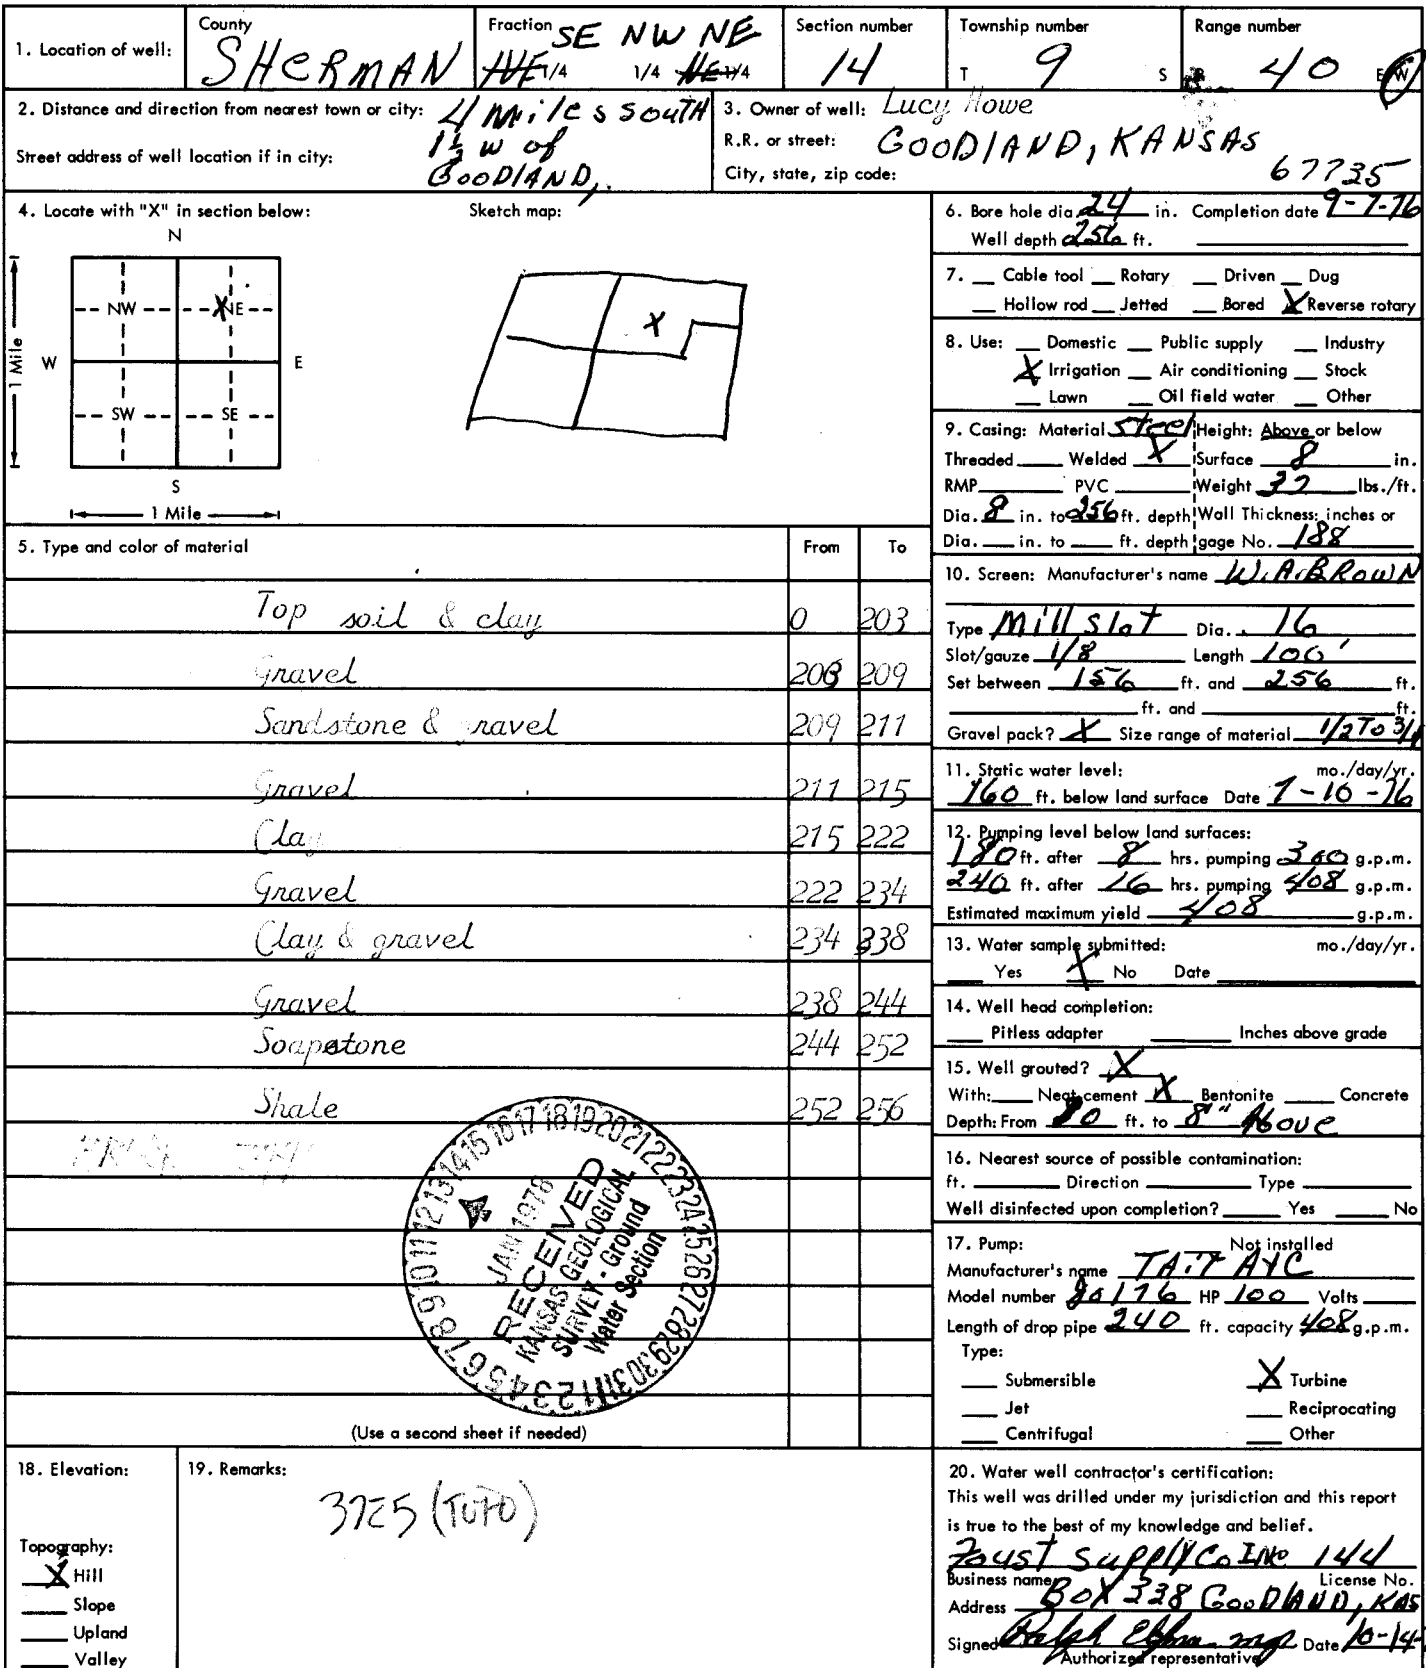 County Fraction SE NW NE Section number Township number Range number
1. Location of well: SHERMAN NE 1/4 1/4 NE 1/4 14 T 9 S R 40 E W
2. Distance and direction from nearest town or city: 4 miles south
1½ w of
Street address of well location if in city: GOODLAND,
3. Owner of well: Lucy Howe
R.R. or street: GOODLAND, KANSAS
City, state, zip code: 67735
4. Locate with "X" in section below: Sketch map:
N
NW X NE
W E
1 Mile
SW SE
S
1 Mile
5. Type and color of material From To
Top soil & clay 0 203
Gravel 203 209
Sandstone & ravel 209 211
Gravel 211 215
Cla 215 222
Gravel 222 234
Clay & gravel 234 338
Gravel 238 244
Soapstone 244 252
Shale 252 256
1 2 3 4 5 6 7 8 9 10 11 12 13 14 15 16 17 18 19 20 21 22 23 24 25 26 27 28 29 30 31
JAN 1978
RECEIVED
KANSAS GEOLOGICAL
SURVEY - Ground
Water Section
(Use a second sheet if needed)
6. Bore hole dia. 24 in. Completion date 9-7-76
Well depth 256 ft.
7. Cable tool Rotary Driven Dug
Hollow rod Jetted Bored X Reverse rotary
8. Use: Domestic Public supply Industry
X Irrigation Air conditioning Stock
Lawn Oil field water Other
9. Casing: Material Steel Height: Above or below
Threaded Welded X Surface 8 in.
RMP PVC Weight 37 lbs./ft.
Dia. 8 in. to 256 ft. depth Wall Thickness: inches or
Dia. in. to ft. depth gage No. 188
10. Screen: Manufacturer's name W.A.BROWN
Type Mill slot Dia. 16
Slot/gauze 1/8 Length 100'
Set between 156 ft. and 256 ft.
ft. and ft.
Gravel pack? X Size range of material 1/2 To
11. Static water level: mo./day/yr.
160 ft. below land surface Date 7-10-76
12. Pumping level below land surfaces:
180 ft. after 8 hrs. pumping 300 g.p.m.
240 ft. after 16 hrs. pumping 408 g.p.m.
Estimated maximum yield 408 g.p.m.
13. Water sample submitted: mo./day/yr.
Yes X No Date
14. Well head completion:
Pitless adapter Inches above grade
15. Well grouted? X
With: Neat cement X Bentonite Concrete
Depth: From ft. to 8" Above
16. Nearest source of possible contamination:
ft. Direction Type
Well disinfected upon completion? Yes No
17. Pump: Not installed
Manufacturer's name
Model number HP 100 Volts
Length of drop pipe 240 ft. capacity 408 g.p.m.
Type:
Submersible X Turbine
Jet Reciprocating
Centrifugal Other
18. Elevation:
Topography:
X Hill
Slope
Upland
Valley
19. Remarks:
(TOPO)
20. Water well contractor's certification:
This well was drilled under my jurisdiction and this report
is true to the best of my knowledge and belief.
Foust Supply Co Inc 144
Business name License No.
Address Box 338 GOODLAND, KAS
Signed Ralph mgr Date 10-14-
Authorized representative